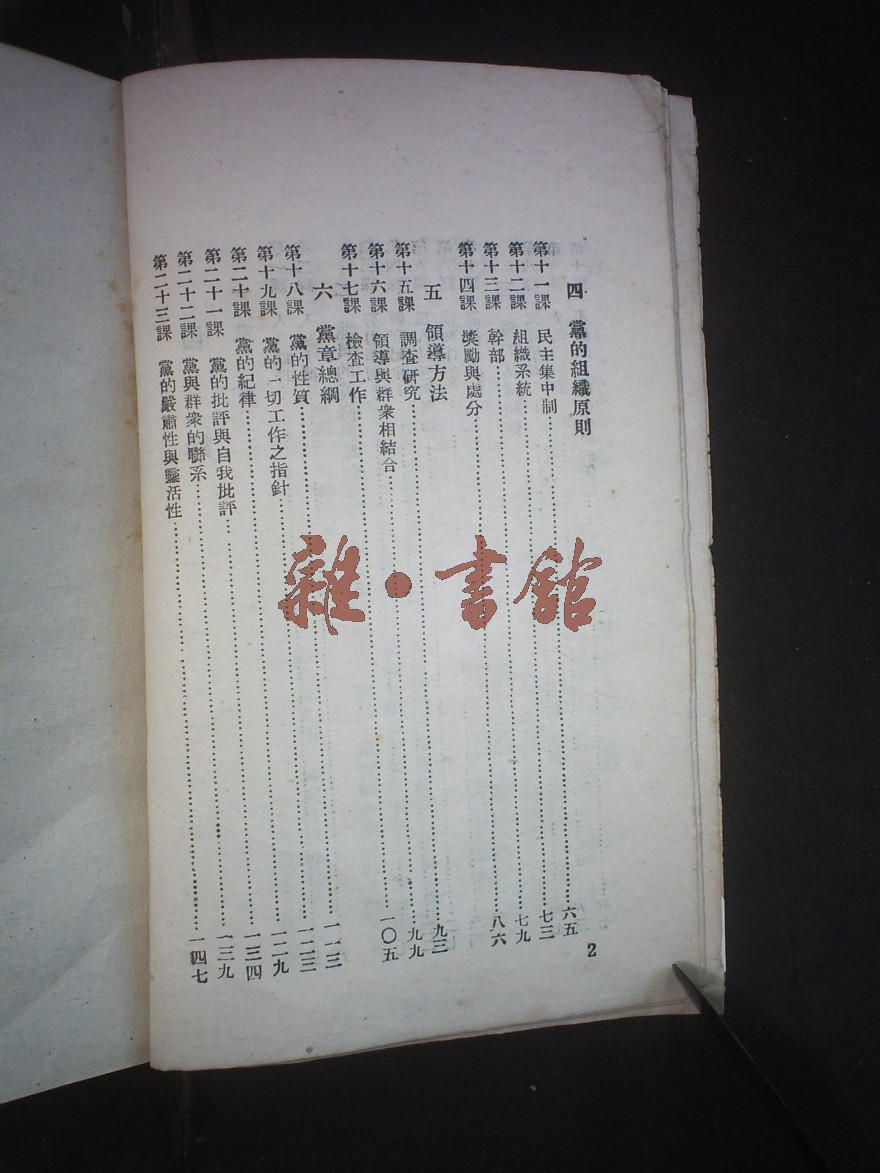 四 黨的組織原則
第十一課 民主集中制……六五
第十二課 組織系統……七三
第十三課 幹部……七九
第十四課 獎勵與處分……八六
五 領導方法
第十五課 調查研究……九三
第十六課 領導與群衆相結合……九九
第十七課 檢查工作……一〇五
六 黨章總綱
第十八課 黨的性質……一一三
第十九課 黨的一切工作之指針……一二三
第二十課 黨的紀律……一二九
第二十一課 黨的批評與自我批評……一三四
第二十二課 黨與群衆的聯系……一三九
第二十三課 黨的嚴肅性與靈活性……一四七
2
雜·書館